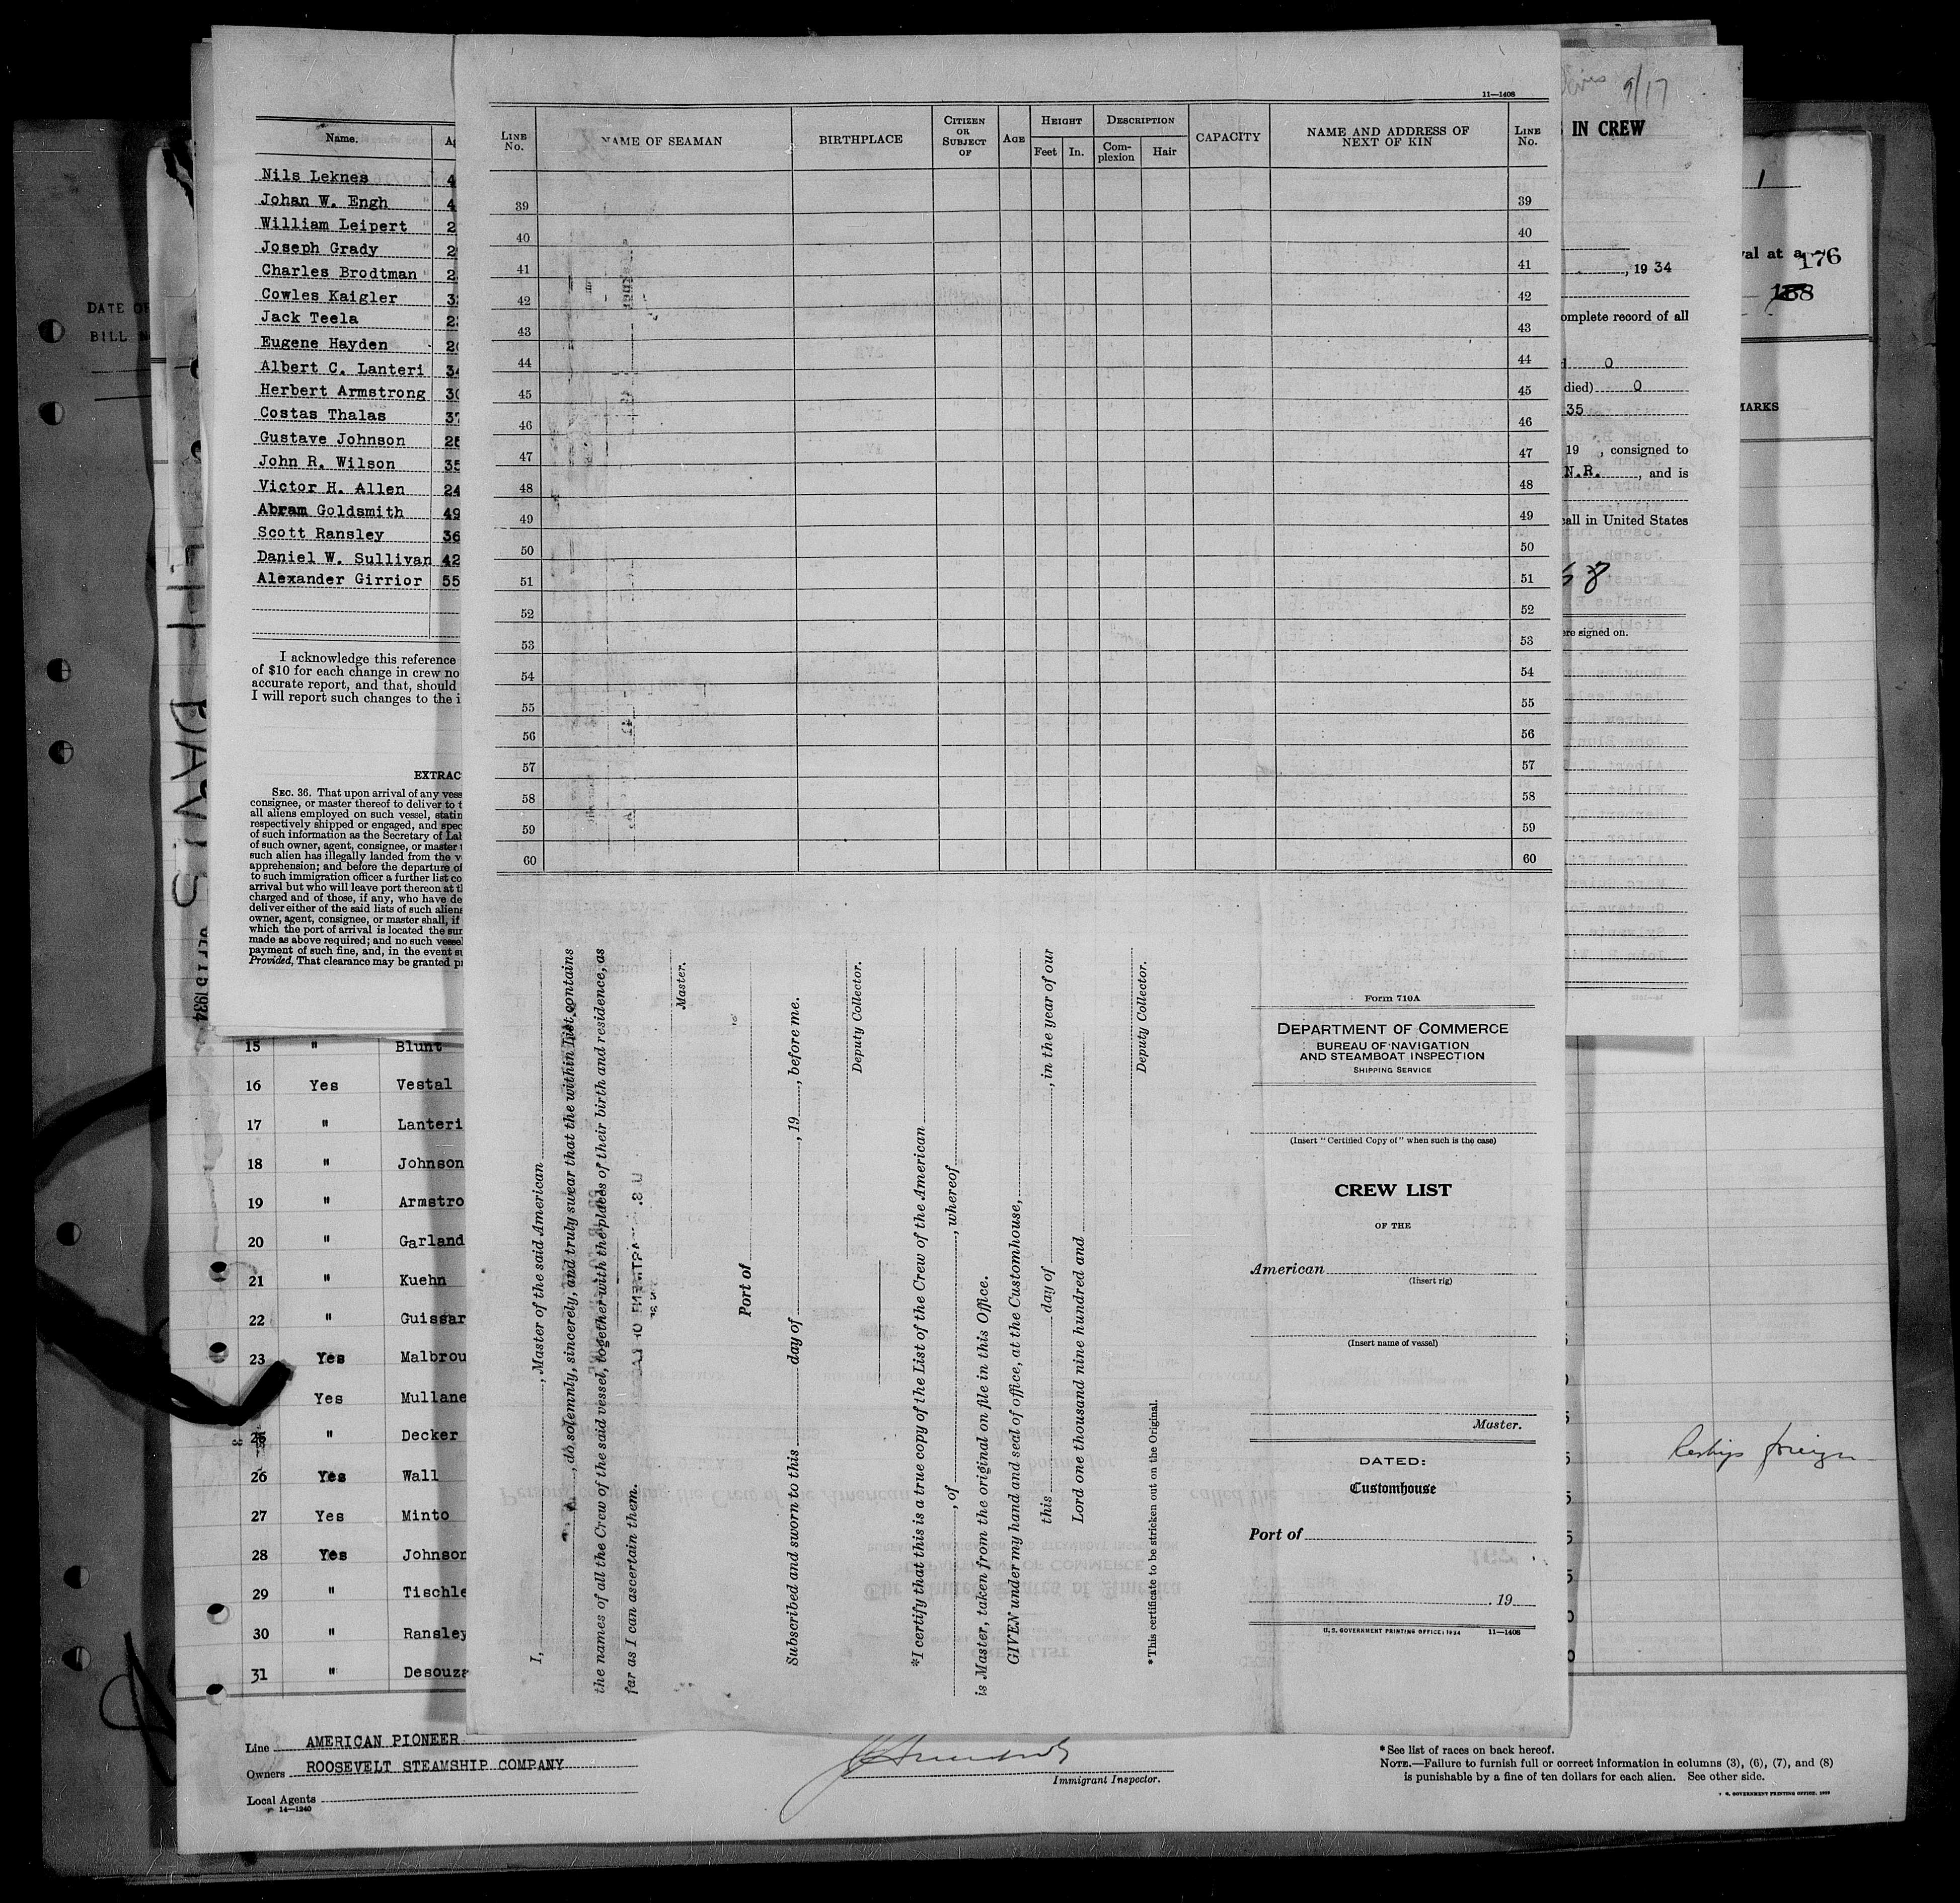 11—1408
LINE No. NAME OF SEAMAN BIRTHPLACE CITIZEN OR SUBJECT OF AGE HEIGHT Feet In. DESCRIPTION Com-plexion Hair CAPACITY NAME AND ADDRESS OF NEXT OF KIN LINE No.
39 39
40 40
41 41
42 42
43 43
44 44
45 45
46 46
47 47
48 48
49 49
50 50
51 51
52 52
53 53
54 54
55 55
56 56
57 57
58 58
59 59
60 60
I, , Master of the said American
, do solemnly, sincerely, and truly swear that the within List contains
the names of all the Crew of the said vessel, together with the places of their birth and residence, as
far as I can ascertain them.
Master.
Port of
Subscribed and sworn to this day of , 19 , before me.
Deputy Collector.
*I certify that this is a true copy of the List of the Crew of the American
, of , whereof
is Master, taken from the original on file in this Office.
GIVEN under my hand and seal of office, at the Customhouse,
this day of , in the year of our
Lord one thousand nine hundred and
Deputy Collector.
*This certificate to be stricken out on the Original.
Form 710A
DEPARTMENT OF COMMERCE
BUREAU OF NAVIGATION
AND STEAMBOAT INSPECTION
SHIPPING SERVICE
(Insert "Certified Copy of" when such is the case)
CREW LIST
OF THE
American
(Insert rig)
(Insert name of vessel)
Master.
DATED:
Customhouse
Port of
. 19
U. S. GOVERNMENT PRINTING OFFICE: 1934 11—1408
Name.
Nils Leknes
Johan W. Engh
William Leipert
Joseph Grady
Charles Brodtman
Cowles Kaigler
Jack Teela
Eugene Hayden
Albert C. Lanteri 34
Herbert Armstrong 30
Costas Thalas 37
Gustave Johnson
John R. Wilson 35
Victor H. Allen 24
Abram Goldsmith 49
Scott Ransley 36
Daniel W. Sullivan 42
Alexander Girrior 55
I acknowledge this reference
of $10 for each change in crew no
accurate report, and that, should
I will report such changes to the i
EXTRAC
SEC. 36. That upon arrival of any vess
consignee, or master thereof to deliver to t
all aliens employed on such vessel, statin
respectively shipped or engaged, and spec
of such information as the Secretary of Lab
of such owner, agent, consignee, or master
such alien has illegally landed from the v
apprehension; and before the departure of
to such immigration officer a further list co
arrival but who will leave port thereon at th
charged and of those, if any, who have de
deliver either of the said lists of such aliens
owner, agent, consignee, or master shall, if
which the port of arrival is located the sum
made as above required; and no such vessel
payment of such fine, and, in the event su
Provided, That clearance may be granted pr
9/17
IN CREW
, 19 34
omplete record of all
0
died) 0
35
19 , consigned to
N.R. , and is
call in United States
68
ere signed on.
1
val at a
176
MARKS
DATE OF
BILL
DAVIS
1934
15 " Blunt
16 Yes Vestal
17 " Lanteri
18 " Johnson
19 " Armstro
20 " Garland
21 " Kuehn
22 " Guissar
23 Yes Malbrou
Yes Mullane
25 " Decker
26 Yes Wall
27 Yes Minto
28 Yes Johnson
29 " Tischle
30 " Ransley
31 " Desouza
Line AMERICAN PIONEER
Owners ROOSEVELT STEAMSHIP COMPANY
Local Agents
14—1240
Immigrant Inspector.
*See list of races on back hereof.
NOTE.—Failure to furnish full or correct information in columns (3), (6), (7), and (8)
is punishable by a fine of ten dollars for each alien. See other side.